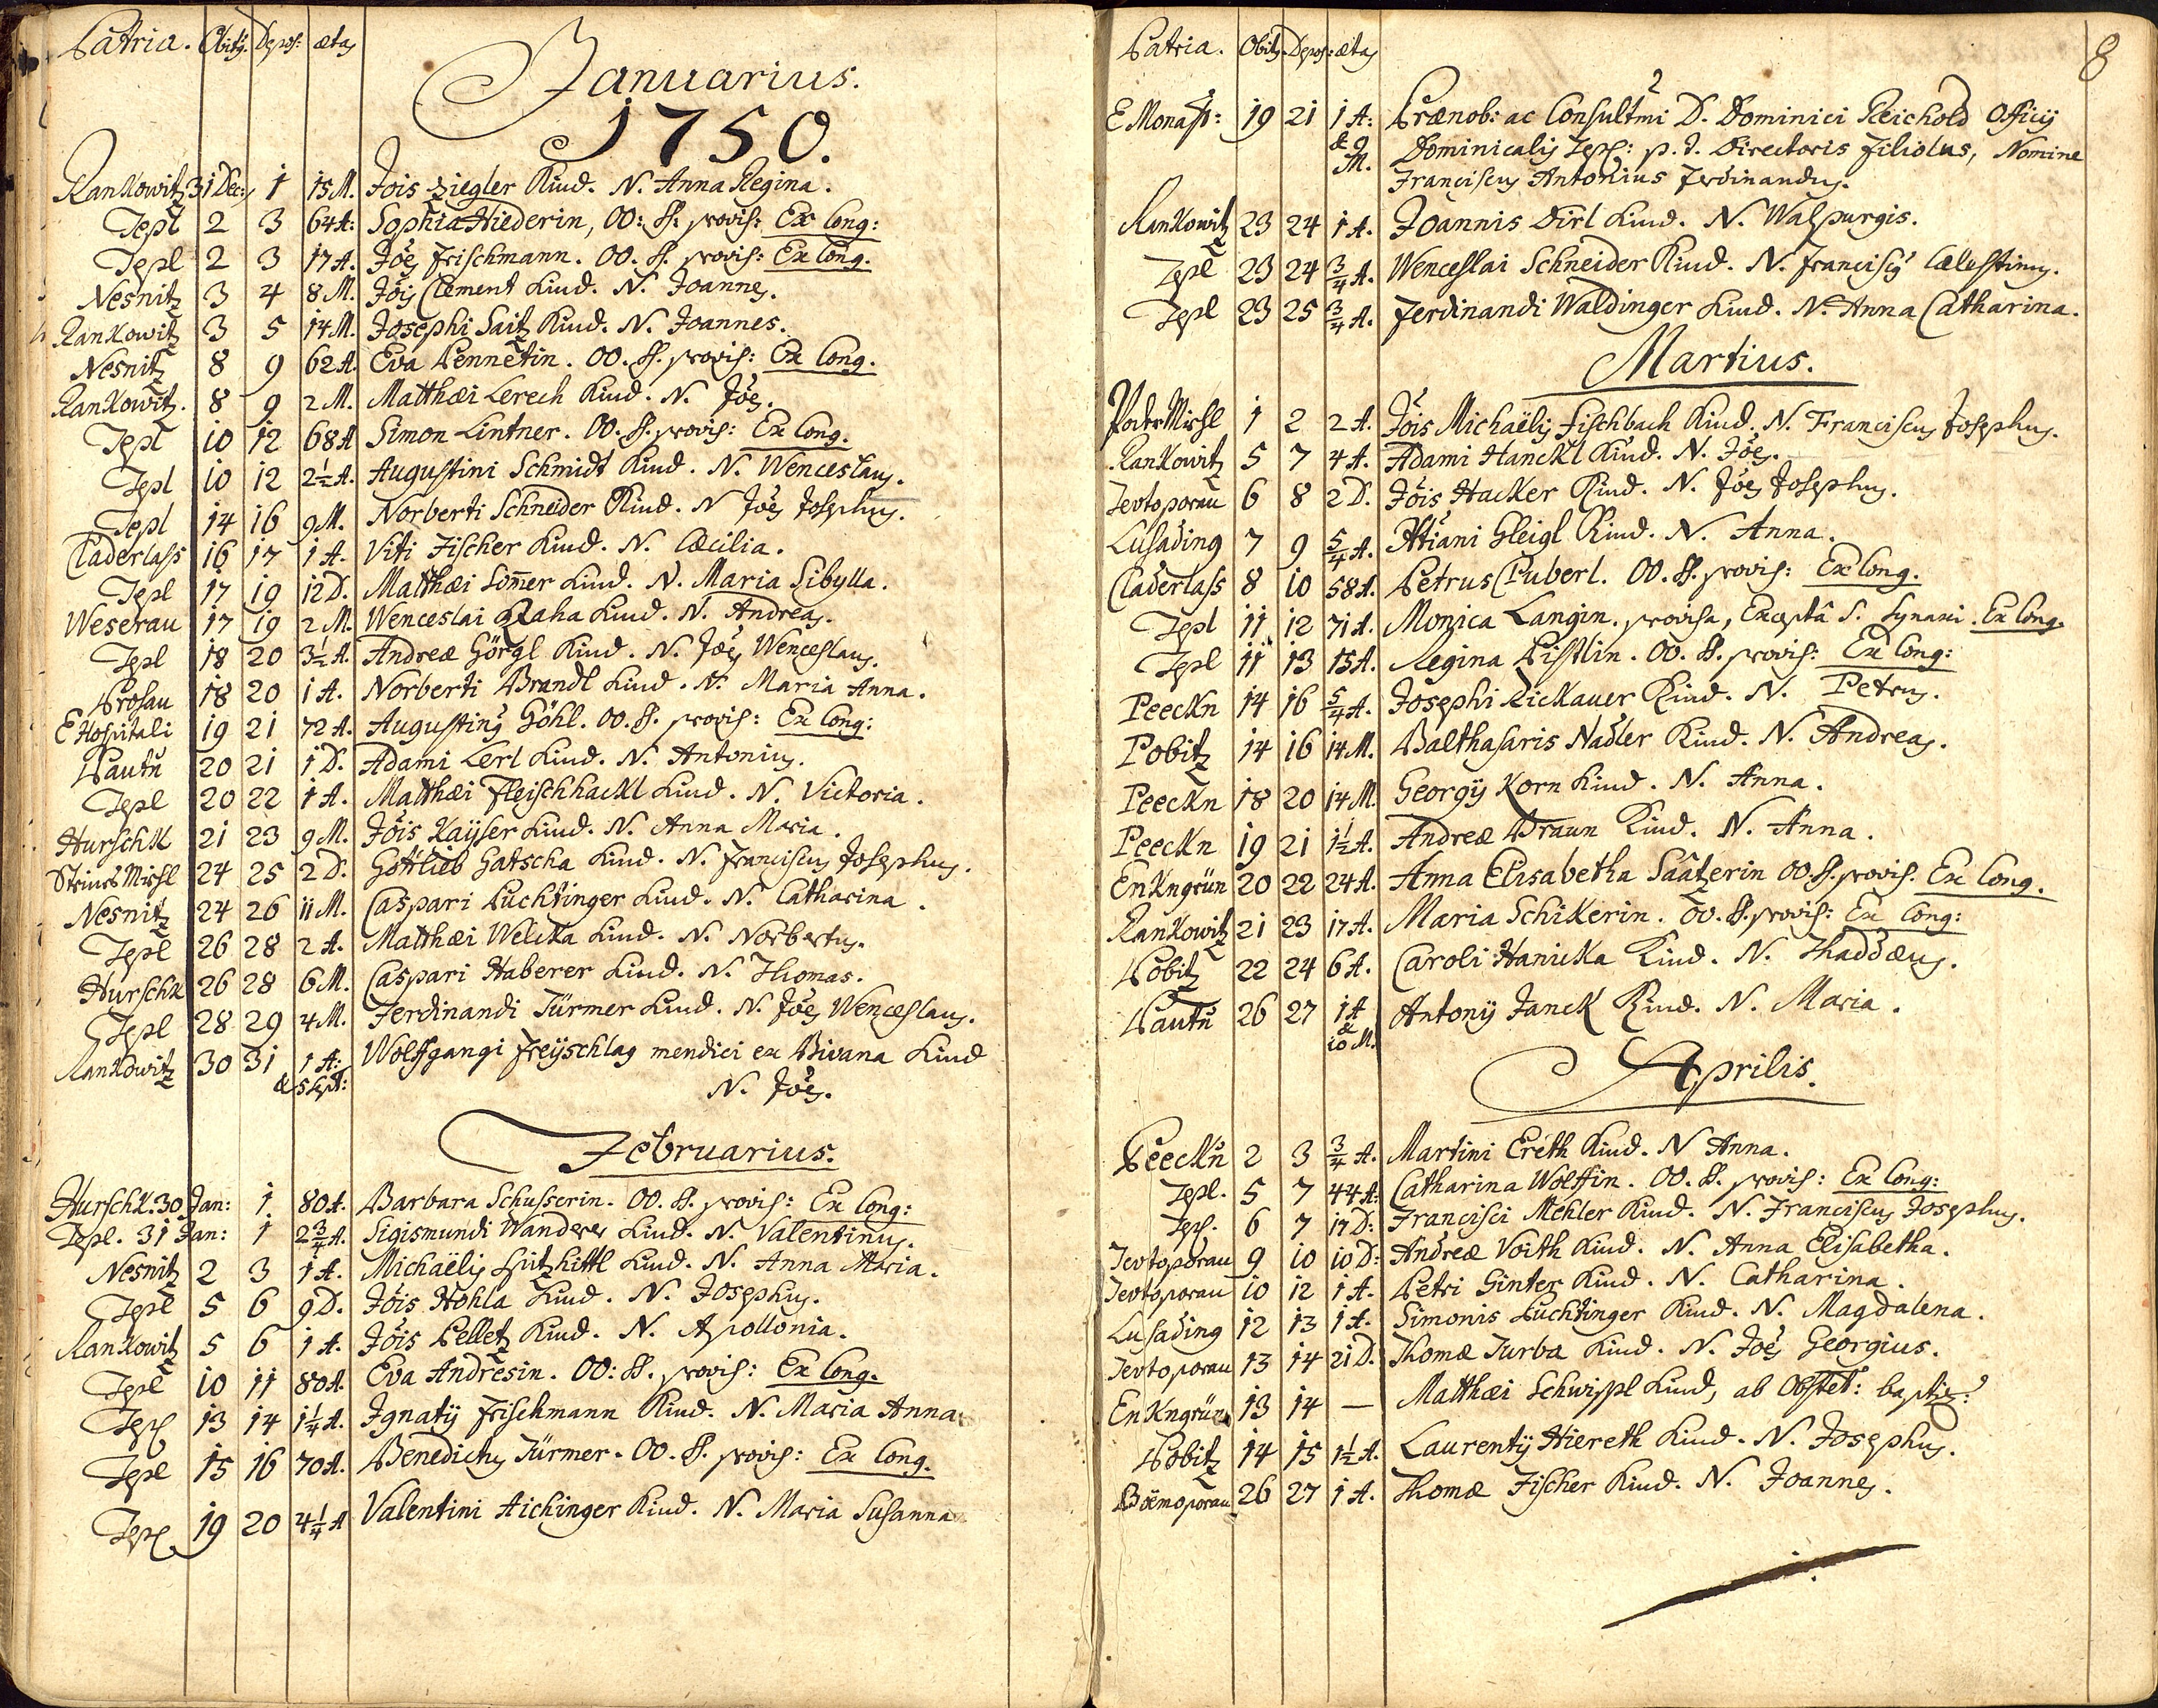 Patria. Obitq. Depos: ætas
Januarius.
1750.
Rankowitz 31 Dec: 1 15 M. Jois Ziegler Kind. N. Anna Regina.
Tepl 2 3 64 A: Sophia Hiederin, OO: SS: provis: Ex Cong:
Tepl 2 3 17 A. Joēs Frischmann. OO. SS. provis: Ex Cong.
Nesnitz 3 4 8 M. Jōis Clement Kind. N. Joannes.
Rankowitz 3 5 14 M. Josephi Saitz Kind. N. Joannes.
Nesnitz 8 9 62 A. Eva Pennetin. OO. SS. provis: Ex Cong.
Rankowitz. 8 9 2 M. Matthæi Lerech Kind. N. Joēs.
Tepl 10 12 68 A Simon Lintner. OO. SS. provis: Ex Cong.
Tepl 10 12 2½ A. Augustini Schmidt Kind. N. Wenceslaus.
Tepl 14 16 9 M. Norberti Schneider Kind. N Joēs Josephus.
Claderlass 16 17 1 A. Viti Fischer Kind. N. Cæcilia.
Tepl 17 19 12 D. Matthæi Som̄er Kind. N. Maria Sibylla.
Weserau 17 19 2 M. Wenceslai Raha Kind. N. Andreas.
Tepl 18 20 3½ A. Andreæ Görgl Kind. N. Joēs Wenceslaus.
Prosau 18 20 1 A. Norberti Brandl Kind. N. Maria Anna.
E Hospitali 19 21 72 A. Augustinq Göhl. OO. SS. provis: Ex Cong:
Pautn 20 21 1 D. Adami Lerl Kind. N. Antonius.
Tepl 20 22 1 A. Matthæi Fleischhackl Kind. N. Victoria.
Hurschk 21 23 9 M. Jōis Kaÿser Kind. N. Anna Maria.
Steines Mihl 24 25 2 D. Gottlieb Gatscha Kind. N. Franciscus Josephus.
Nesnitz 24 26 11 M. Caspari Luchtinger Kind. N. Catharina.
Tepl 26 28 2 A. Matthæi Welcka Kind. N. Norbertus.
Hurschk 26 28 6 M. Caspari Haberer Kind. N. Thomas.
Tepl 28 29 4 M. Ferdinandi Türmer Kind. N. Joēs Wenceslaus.
Rankowitz 30 31 1 A: Wolffgangi Freÿschlag mendici ex Bivana Kind
& 5 Sept: N. Joēs.
Februarius.
Hurschk. 30 Jan: 1. 80 A. Barbara Schusserin. OO. SS. provis: Ex Cong:
Tepl. 31 Jan: 1 2¾ A. Sigismundi Wanderer Kind. N. Valentinus.
Nesnitz 2 3 1 A. Michaëlis Spitzhittl Kind. N. Anna Maria.
Tepl 5 6 9 D. Jōis Hohla Kind. N. Josephus.
Rankowitz 5 6 1 A. Jōis Pelletz Kind. N. Apollonia.
Tepl 10 11 80 A. Eva Andresin. OO: SS. provis: Ex Cong.
Tepl 13 14 1¼ A. Ignatÿ Frischmann Kind. N. Maria Anna
Tepl 15 16 70 A. Benedictus Türmer. OO. SS. provis: Ex Cong.
Tepl 19 20 4¼ A Valentini Aichinger Kind. N. Maria Susanna
Patria. Obitq. Depos: ætas
8
E Monast: 19 21 1 A: Prænob: ac Consultmi D. Dominici Reichold Officij
& 9 M. Dominicalis Tepl: p. t. Directoris filiolus, Nomine
Franciscus Antonius Ferdinandus.
Rankowitz 23 24 1 A. Joannis Dirl Kind. N. Walpurgis.
Tepl 23 24 ¾ A. Wenceslai Schneider Kind. N. Franciscq Cælestinus.
Tepl 23 25 ¾ A. Ferdinandi Waldinger Kind. N. Anna Catharina.
Martius.
Poder Mihl 1 2 2 A. Jōis Michaëlis Fischbach Kind. N. Franciscus Josephus.
Rankowitz 5 7 4 A. Adami Hanckl Kind. N. Joēs.
Tevtoporau 6 8 2 D. Jōis Hacker Kind. N. Joēs Josephus.
Lusading 7 9 5/4 A. Atiani Gleigl Kind. N. Anna.
Claderlass 8 10 58 A. Petrus Puberl. OO. SS. provis: Ex Cong.
Tepl 11 12 71 A. Monica Langin. provisa, Exceptâ S. Synaxi. Ex Cong.
Tepl 11 13 15 A. Regina Pistlin. OO. SS. provis: Ex Cong:
Peeckn 14 16 5/4 A. Josephi Lickauer Kind. N. Petrus.
Pobitz 14 16 14 M. Balthasaris Nadler Kind. N. Andreas.
Peeckn 18 20 14 M. Georgÿ Korn Kind. N. Anna.
Peeckn 19 21 1½ A. Andreæ Braun Kind. N. Anna.
Enkngrün 20 22 24 A. Anna Elisabetha Saatzerin OO. SS. provis. Ex Cong.
Rankowitz 21 23 17 A. Maria Schikerin. OO. SS. provis: Ex Cong:
Pobitz 22 24 6 A. Caroli Hanicka Kind. N. Thaddæus.
Pautn 26 27 1 A Antonÿ Janck Kind. N. Maria.
& 10 M.
Aprilis.
Peeckn 2 3 ¾ A. Martini Ereth Kind. N Anna.
Tepl. 5 7 44 A: Catharina Wolffin. OO. SS. provis: Ex Cong:
Tepl. 6 7 17 D: Francisci Mehler Kind. N. Franciscus Josephus.
Tevtoporau 9 10 10 D: Andreæ Voith Kind. N. Anna Elisabetha.
Tevtoporau 10 12 1 A. Petri Ginter Kind. N. Catharina.
Lusading 12 13 1 A. Simonis Luchtinger Kind. N. Magdalena.
Tevtoporau 13 14 21 D. Thomæ Turba Kind. N. Joēs Georgius.
Enkngrün 13 14 — Matthæi Schwippl Kind, ab Obstet: baptiz:
Pobitz 14 15 1½ A. Laurentÿ Hiereth Kind. N. Josephus.
Böemoporau 26 27 1 A. Thomæ Fischer Kind. N. Joannes.